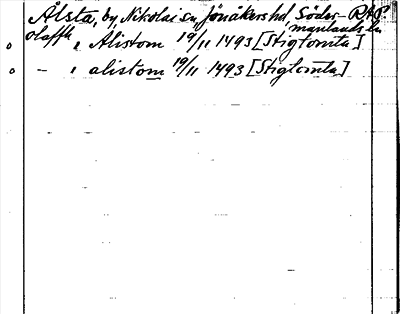 Ålsta, by, Nikolai sn, Jönåkers hd, Söder- RAP.
manlands län
olaffh , Alistom 19/11 1493 [Stigtomta]
– , alistom 19/11 1493 [Stigtomta]